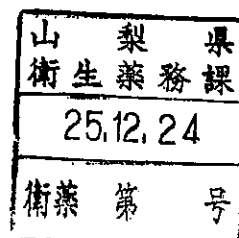 山梨県
衛生薬務課
25.12.24
衛薬第 号